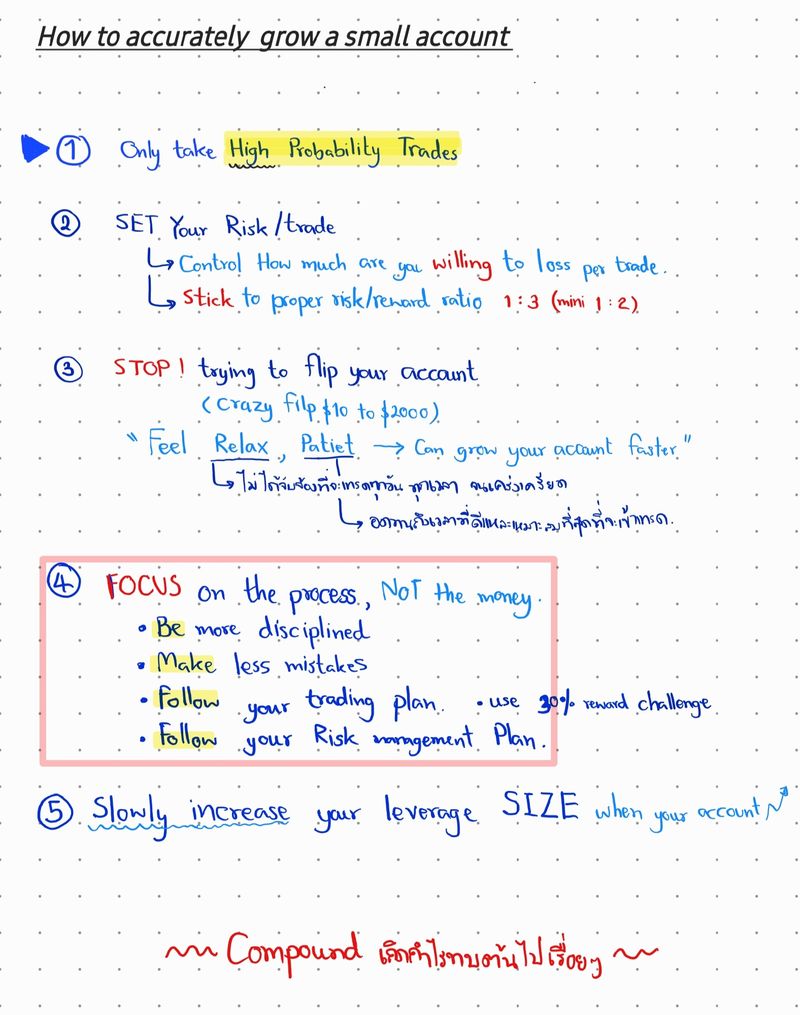 How to accurately grow a small account
① Only take High Probability Trades
② SET Your Risk/trade
↳ Control How much are you willing to loss per trade.
↳ Stick to proper risk/reward ratio 1:3 (mini 1:2)
③ STOP! trying to flip your account
(Crazy filp $10 to $2000)
"Feel Relax, Patiet → Can grow your account faster"
↳ ไม่ได้จับจ้องที่จะเทรดทุกวัน ทุกเวลา จนเคร่งเครียด
↳ อดทนถึงเวลาที่ดีและเหมาะสมที่สุดที่จะเข้าเทรด.
④ FOCUS on the process, NOT the money.
• Be more disciplined
• Make less mistakes
• Follow your trading plan. • use 30% reward challenge
• Follow your Risk management Plan.
⑤ Slowly increase your leverage SIZE when your account
~ Compound กำไรทบต้นไปเรื่อยๆ ~